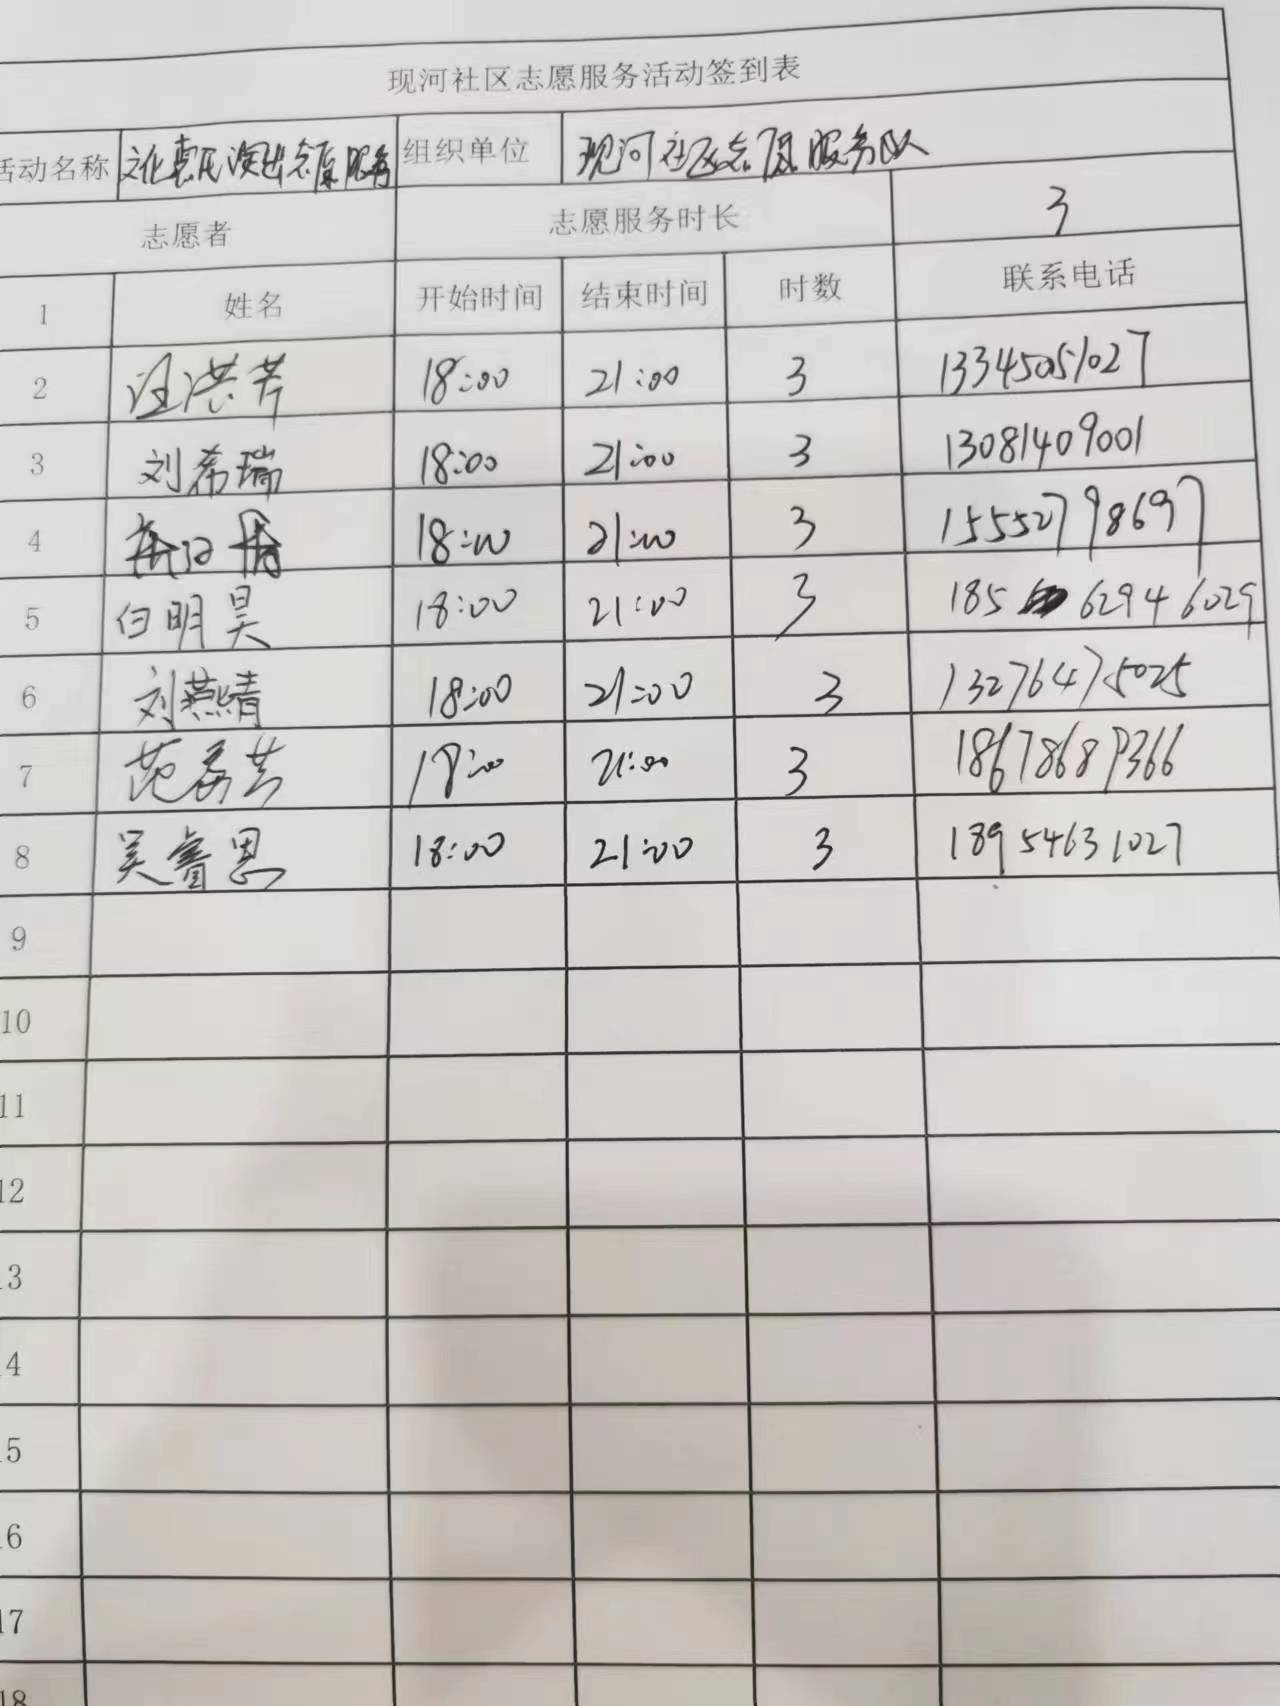 现河社区志愿服务活动签到表
活动名称 文化惠民演出志愿服务 组织单位 现河社区志愿服务队
志愿者 志愿服务时长 3
1 姓名 开始时间 结束时间 时数 联系电话
2 汪洪芹 18:00 21:00 3 13345051027
3 刘希瑞 18:00 21:00 3 13081409001
4 18:00 21:00 3 15552798697
5 白明昊 18:00 21:00 3 18562946029
6 刘燕绩 18:00 21:00 3 13276475025
7 18:00 21:00 3 18678689366
8 吴睿恩 18:00 21:00 3 18954631027
9
10
11
12
13
14
15
16
17
18